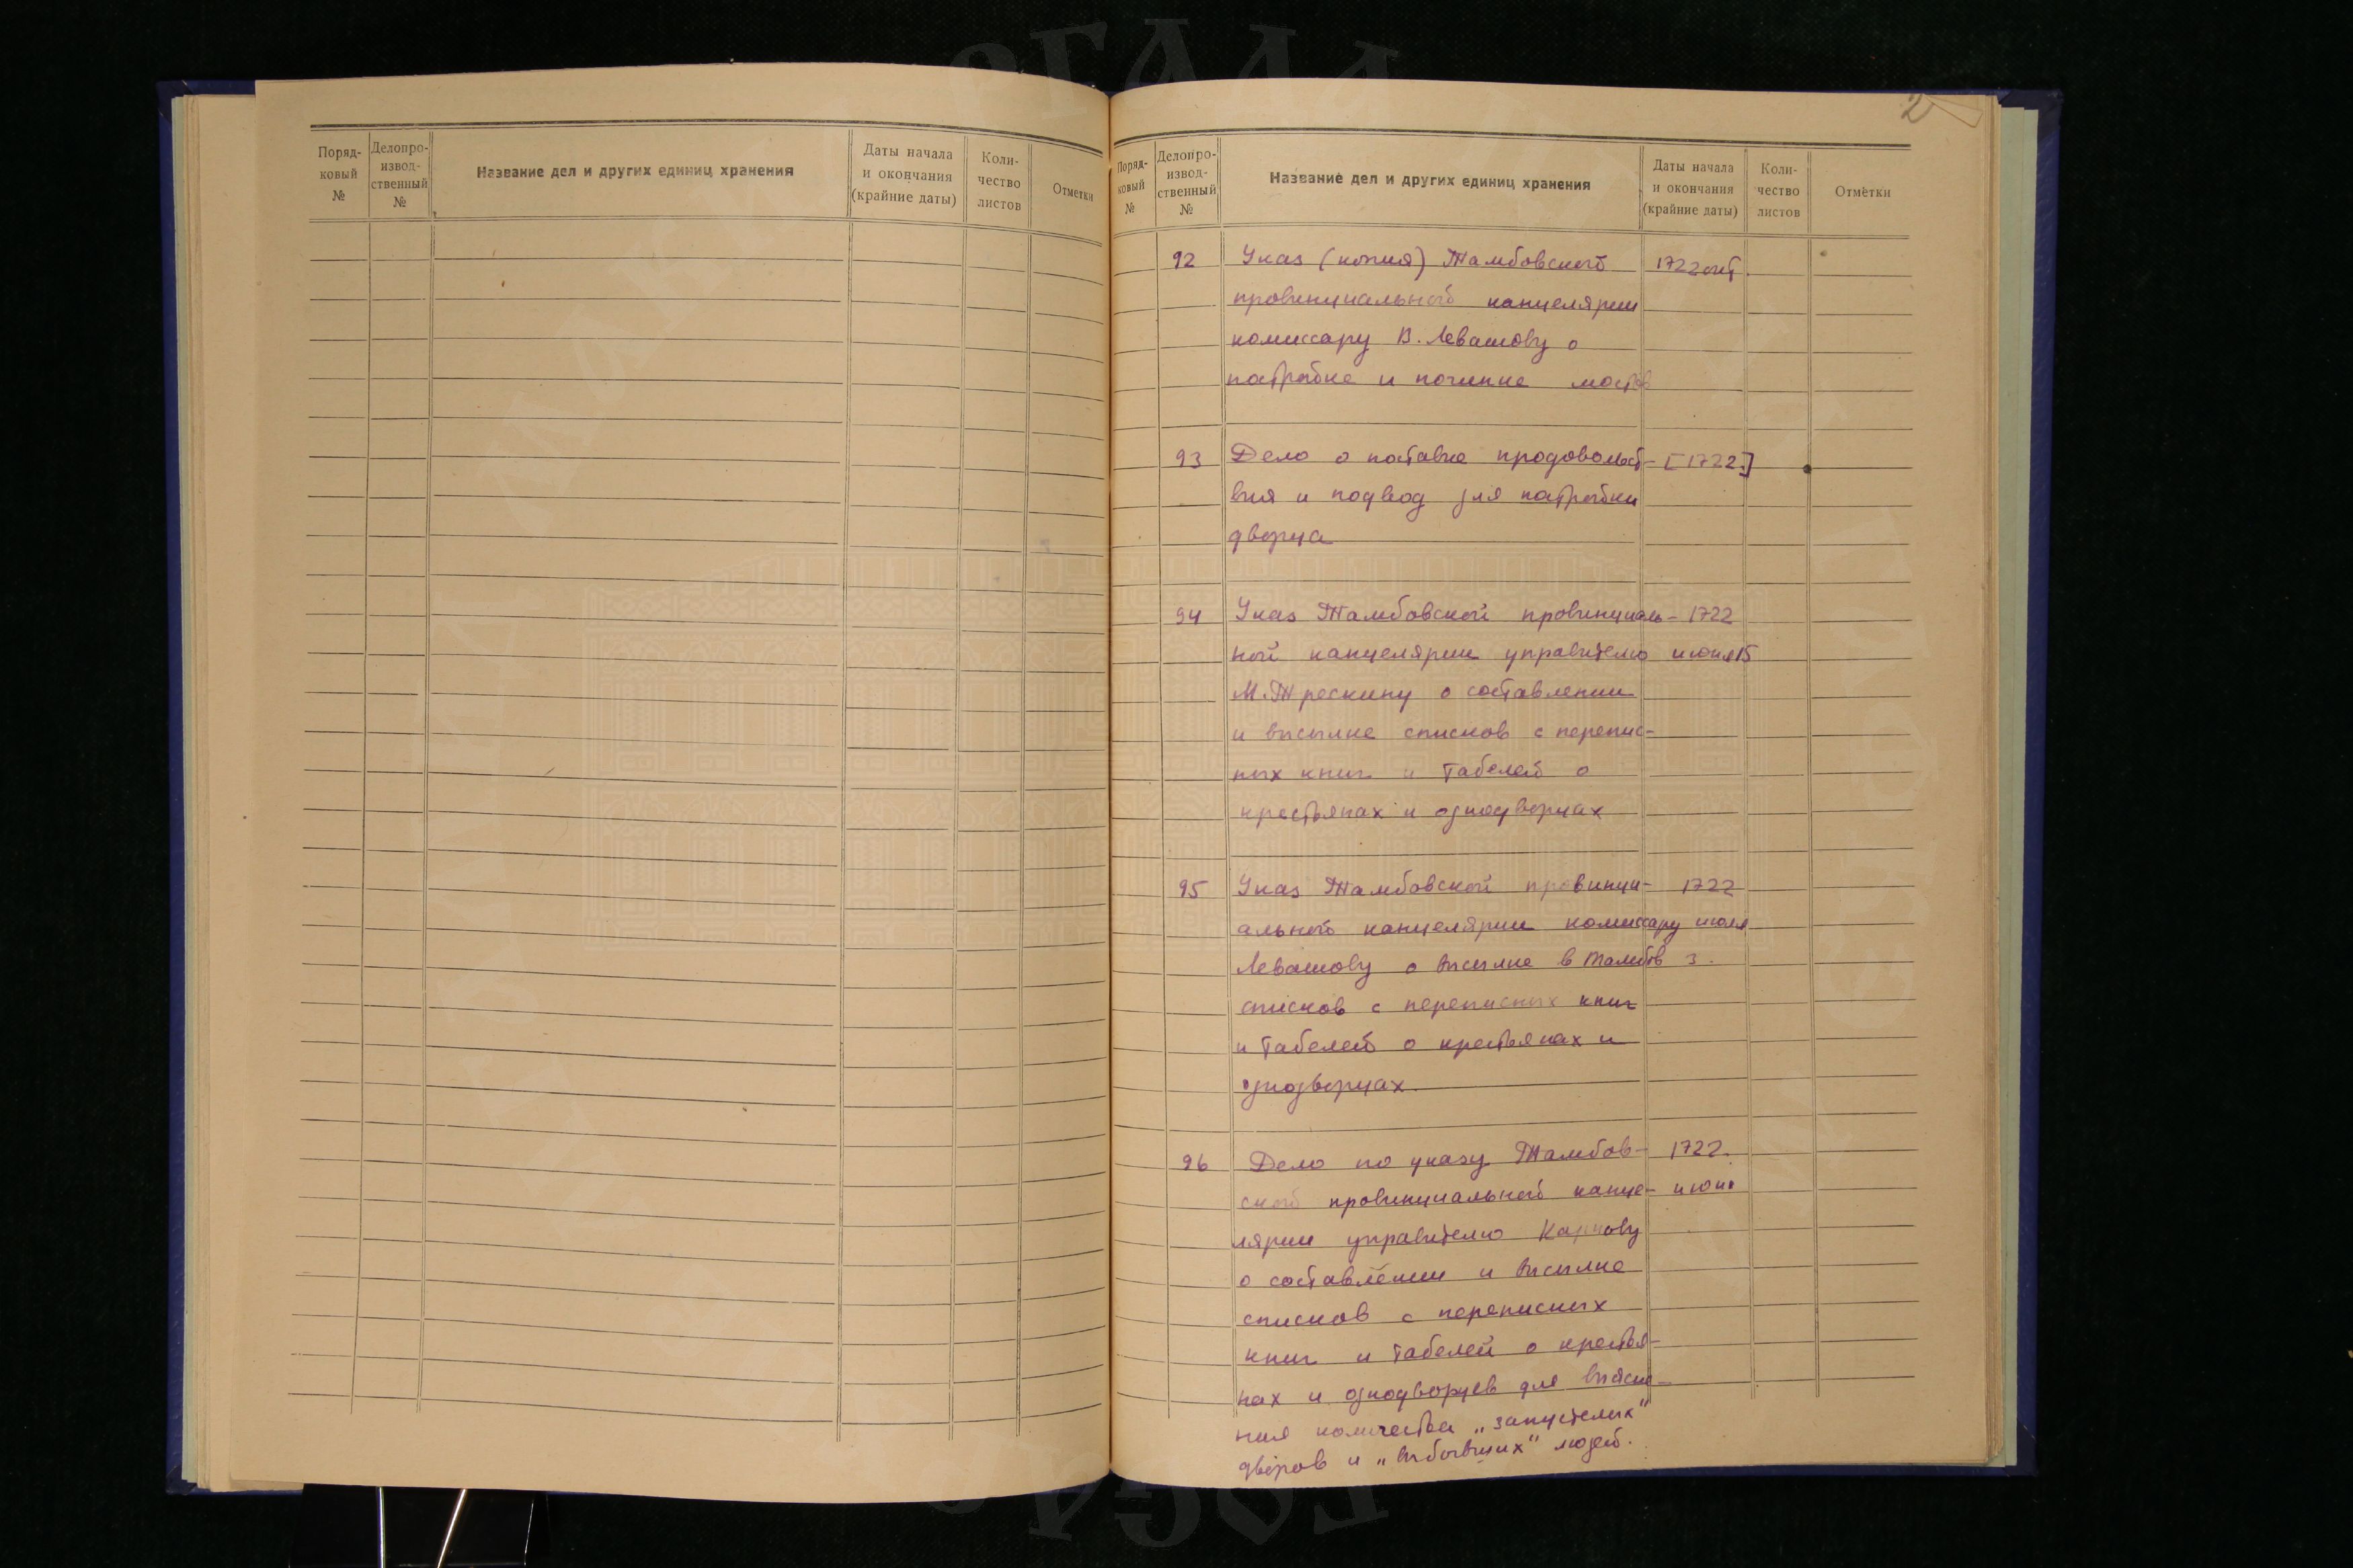 Поряд-
ковый
№
Делопро-
извод-
ственный
№
Название дел и других единиц хранения
Даты начала
и окончания
(крайние даты)
Коли-
чество
листов
Отметки
2
Поряд-
ковый
№
Делопро-
извод-
ственный
№
Название дел и других единиц хранения
Даты начала
и окончания
(крайние даты)
Коли-
чество
листов
Отметки
92 Указ (копия) Тамбовской 1722 окт.
провинциальной канцелярии
комиссару В. Левашову о
постройке и починке мостов
93 Дело о поставке продовольст- [1722.]
вия и подвод для постройки
дворца
94 Указ Тамбовской провинциаль- 1722
ной канцелярии управителю июня 15
М. Трескину о составлении
и высылке списков с перепис-
ных книг и табелей о
крестьянах и однодворцах
95 Указ Тамбовской провинци- 1722
альной канцелярии комиссару июля
Левашову о высылке в Тамбов 3.
списков с переписных книг
и табелей о крестьянах и
однодворцах.
96 Дело по указу Тамбов- 1722.
ской провинциальной канце- июнь
лярии управителю Карпову
о составлении и высылке
списков с переписных
книг и табелей о крестья-
нах и однодворцев для выясне-
ния количества „запустелых"
дворов и „выбывших" людей.